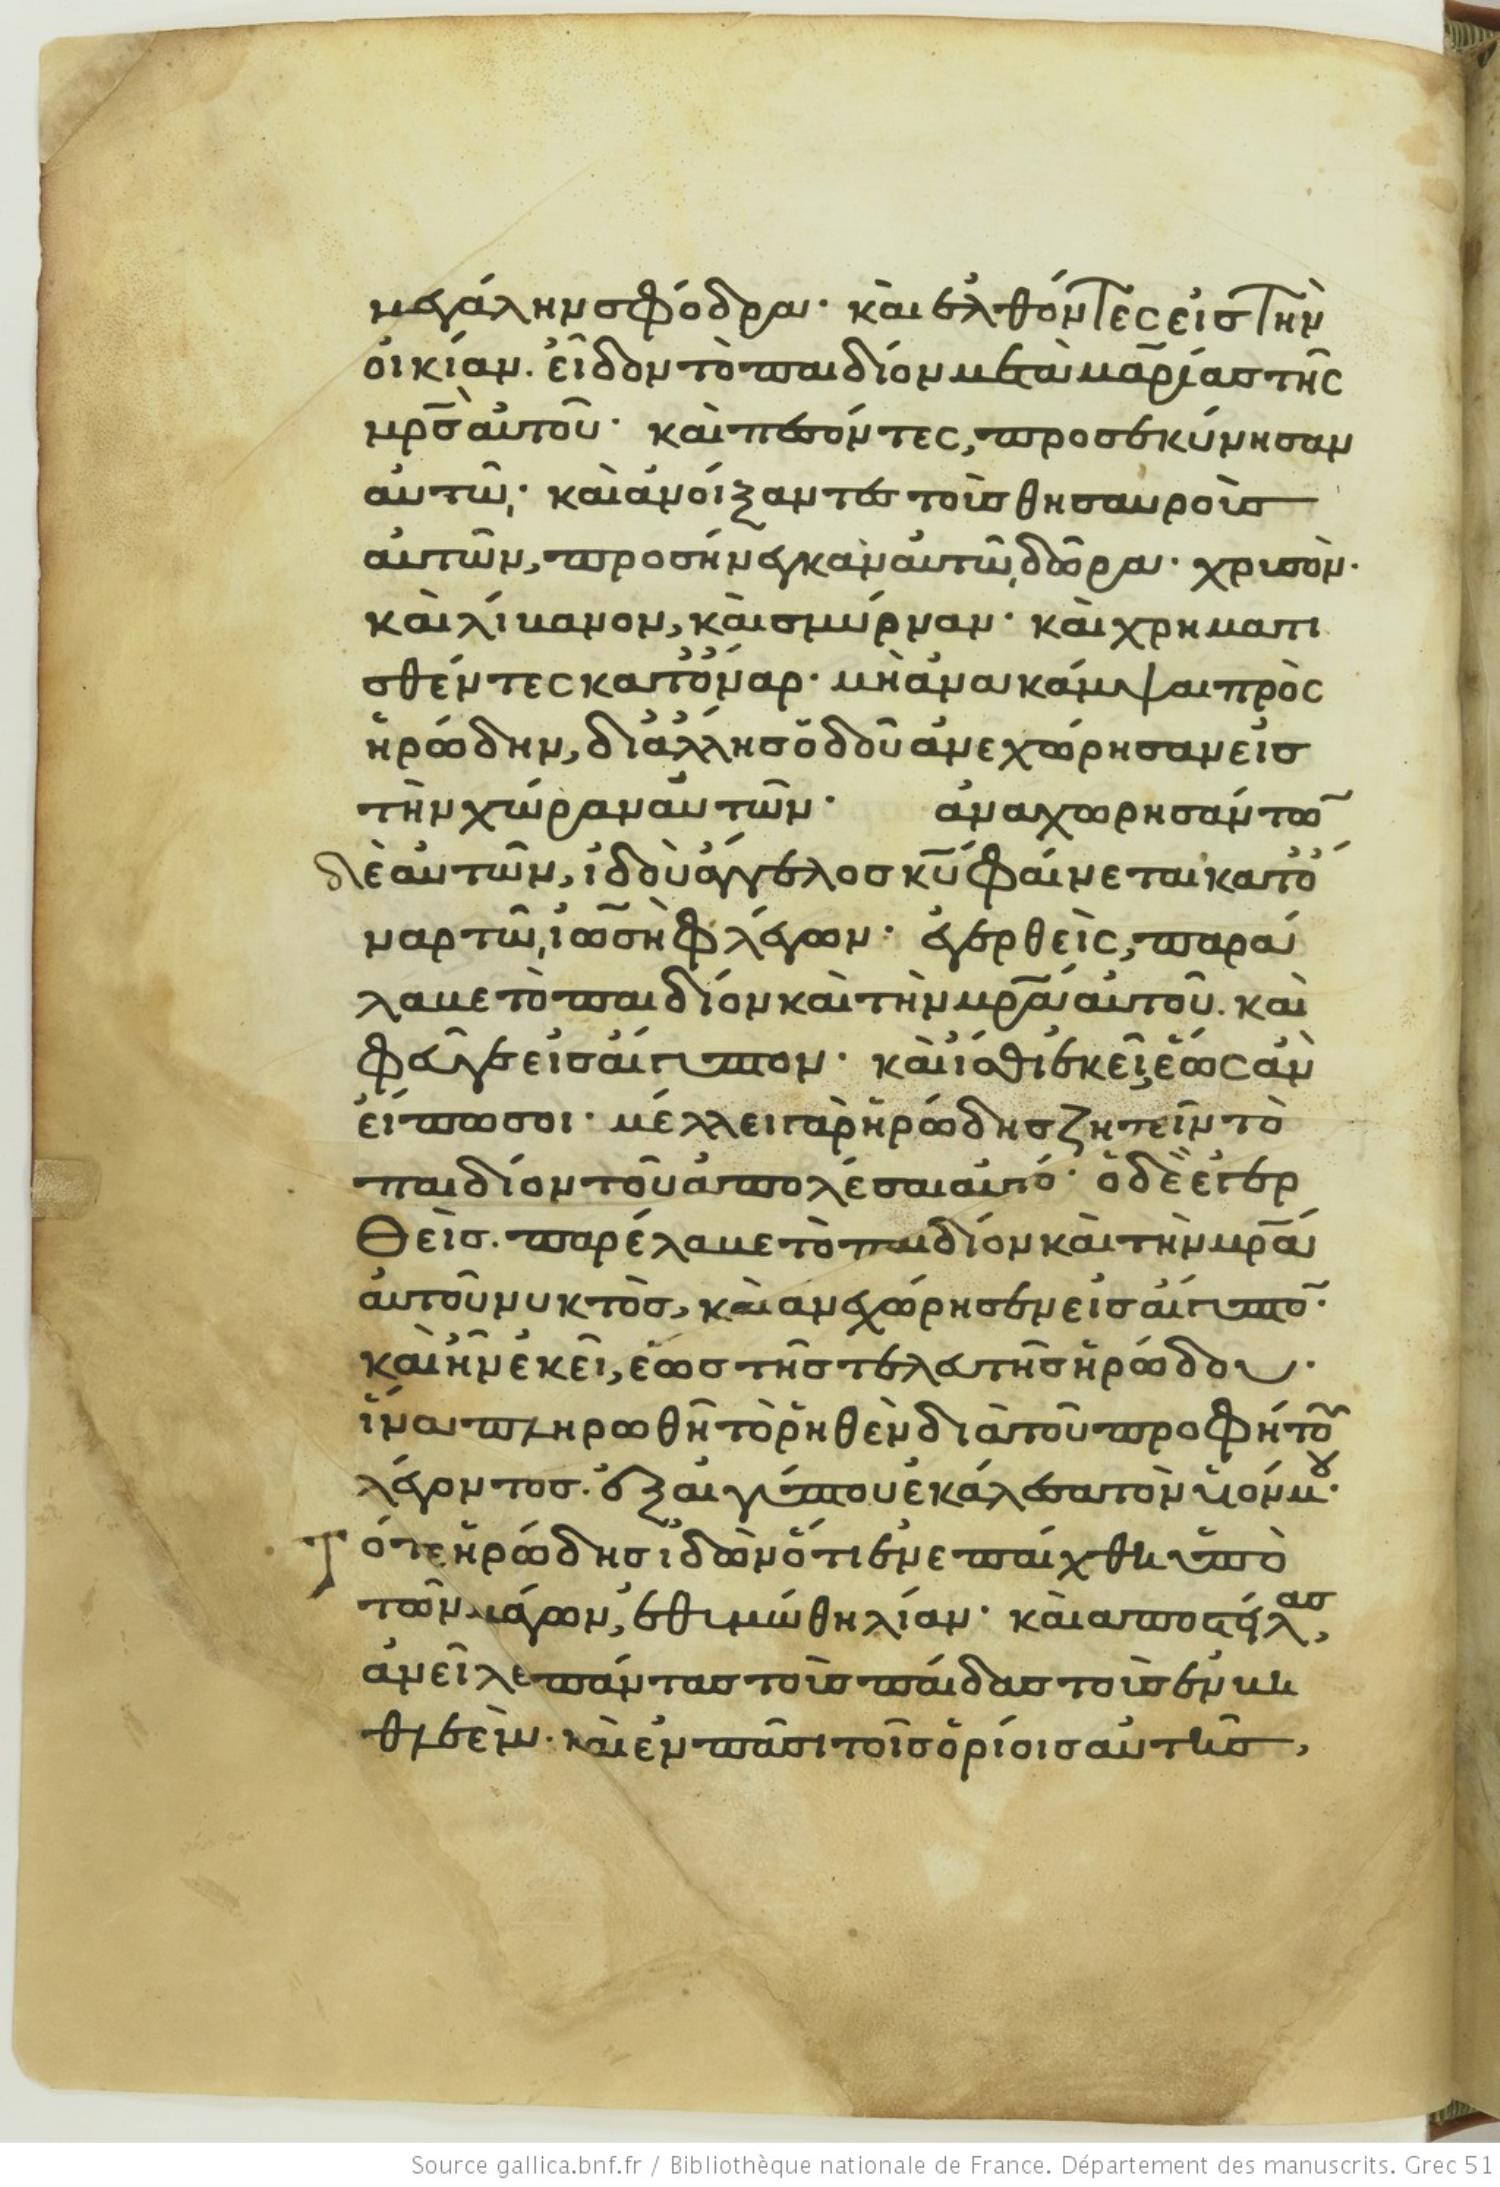 μεγάλην σφόδρα· καὶ ἐλθόντες εἰς τὴν
οἰκίαν. εἶδον τὸ παιδίον μετὰ μαρίας τῆς
μρ̅ς αὐτοῦ· καὶ πεσόντες, προσεκύνησαν
αὐτῶ· καὶ ἀνοίξαντες τοὺς θησαυροὺς
αὐτῶν, προσήνεγκαν αὐτῶ δῶρα· χρυσὸν·
καὶ λίβανον, καὶ σμύρναν· καὶ χρηματι
σθέντες κατ' ὄναρ· μὴ ἀνακάμψαι πρὸς
ἡρώδην, δι' ἄλλης ὁδοῦ ἀνεχώρησαν εἰς
τὴν χώραν αὐτῶν· ἀναχωρησάντω̅
δὲ αὐτῶν, ἰδοὺ ἄγγελος κ̅υ̅ φαίνεται κατ' ὄ
ναρ τῶ ἰωσὴφ λέγων· ἐγερθεὶς, παρά
λαβε τὸ παιδίον καὶ τὴν μρ̅α αὐτοῦ. καὶ
φεῦγε εἰς αἴγυπτον· καὶ ἴσθι ἐκεῖ, ἕως ἂν
εἴπω σοι· μέλλει γὰρ ἡρώδης ζητεῖν τὸ
παιδίον τοῦ ἀπολέσαι αὐτό· ὁ δὲ ἐγερ
θεὶς. παρέλαβε τὸ παιδίον καὶ τὴν μρ̅α
αὐτοῦ νυκτὸς, καὶ ανεχώρησεν εἰς αἴγυπτο̅·
καὶ ἦν ἐκεῖ, ἕως τῆς τελευτῆς ἡρώδου·
ἵνα πληρωθῆ τὸ ῥηθὲν διὰ τοῦ προφήτου
λέγοντος· ἐξ αἰγύπτου ἐκάλεσα τὸν υἱόν μου·
Τότε ἡρώδης ἰδὼν ὅτι ἐνεπαίχθη ὑπὸ
τῶν μάγων, ἐθυμώθη λίαν· καὶ αποστείλας,
ἀνεῖλε πάντας τοὺς παῖδας τοὺς ἐν βη
θλεὲμ· καὶ ἐν πᾶσι τοῖς ὁρίοις αὐτῆς,
Source gallica.bnf.fr / Bibliothèque nationale de France. Département des manuscrits. Grec 51